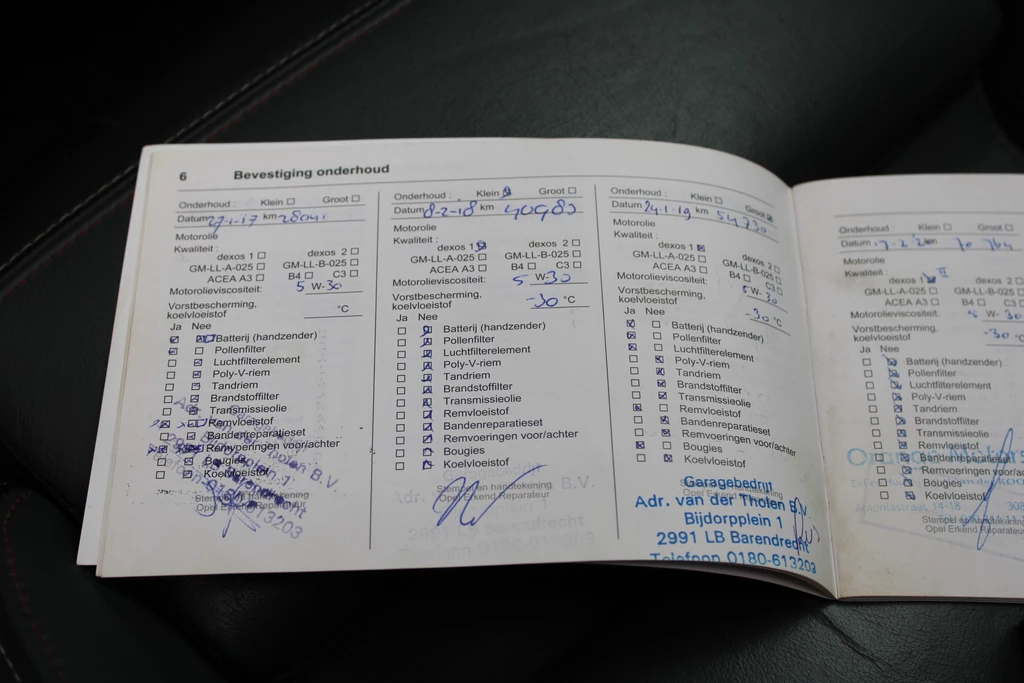 6 Bevestiging onderhoud
Onderhoud : Klein Groot
Datum 27-1-17 km 28041
Motorolie
Kwaliteit :
dexos 1 dexos 2
GM-LL-A-025 GM-LL-B-025
ACEA A3 B4 C3
Motorolieviscositeit: 5 W-30
Vorstbescherming,
koelvloeistof °C
Ja Nee
Batterij (handzender)
Pollenfilter
Luchtfilterelement
Poly-V-riem
Tandriem
Brandstoffilter
Transmissieolie
Remvloeistof
Bandenreparatieset
Remvoeringen voor/achter
Bougies
Koelvloeistof
Stempel en handtekening
Opel Erkend Reparateur
Onderhoud : Klein Groot
Datum 8-2-18 km 40983
Motorolie
Kwaliteit :
dexos 1 dexos 2
GM-LL-A-025 GM-LL-B-025
ACEA A3 B4 C3
Motorolieviscositeit: 5 W-30
Vorstbescherming,
koelvloeistof -30 °C
Ja Nee
Batterij (handzender)
Pollenfilter
Luchtfilterelement
Poly-V-riem
Tandriem
Brandstoffilter
Transmissieolie
Remvloeistof
Bandenreparatieset
Remvoeringen voor/achter
Bougies
Koelvloeistof
Stempel en handtekening
Opel Erkend Reparateur
Onderhoud : Klein Groot
Datum 24-1-19 km 54730
Motorolie
Kwaliteit :
dexos 1 dexos 2
GM-LL-A-025 GM-LL-B-025
ACEA A3 B4 C3
Motorolieviscositeit: 5 W-30
Vorstbescherming,
koelvloeistof -30 °C
Ja Nee
Batterij (handzender)
Pollenfilter
Luchtfilterelement
Poly-V-riem
Tandriem
Brandstoffilter
Transmissieolie
Remvloeistof
Bandenreparatieset
Remvoeringen voor/achter
Bougies
Koelvloeistof
Garagebedrijf
Adr. van der Tholen B.V.
Bijdorpplein 1
2991 LB Barendrecht
Telefoon 0180-613203
Onderhoud : Klein Groot
Datum km 70 764
Motorolie
Kwaliteit :
dexos 1 dexos 2
GM-LL-A-025 GM-LL-B-025
ACEA A3 B4 C3
Motorolieviscositeit: 5 W-30
Vorstbescherming,
koelvloeistof -30 °C
Ja Nee
Batterij (handzender)
Pollenfilter
Luchtfilterelement
Poly-V-riem
Tandriem
Brandstoffilter
Transmissieolie
Remvloeistof
Bandenreparatieset
Remvoeringen voor/a
Bougies
Koelvloeistof
Stempel en handtekening
Opel Erkend Reparateur